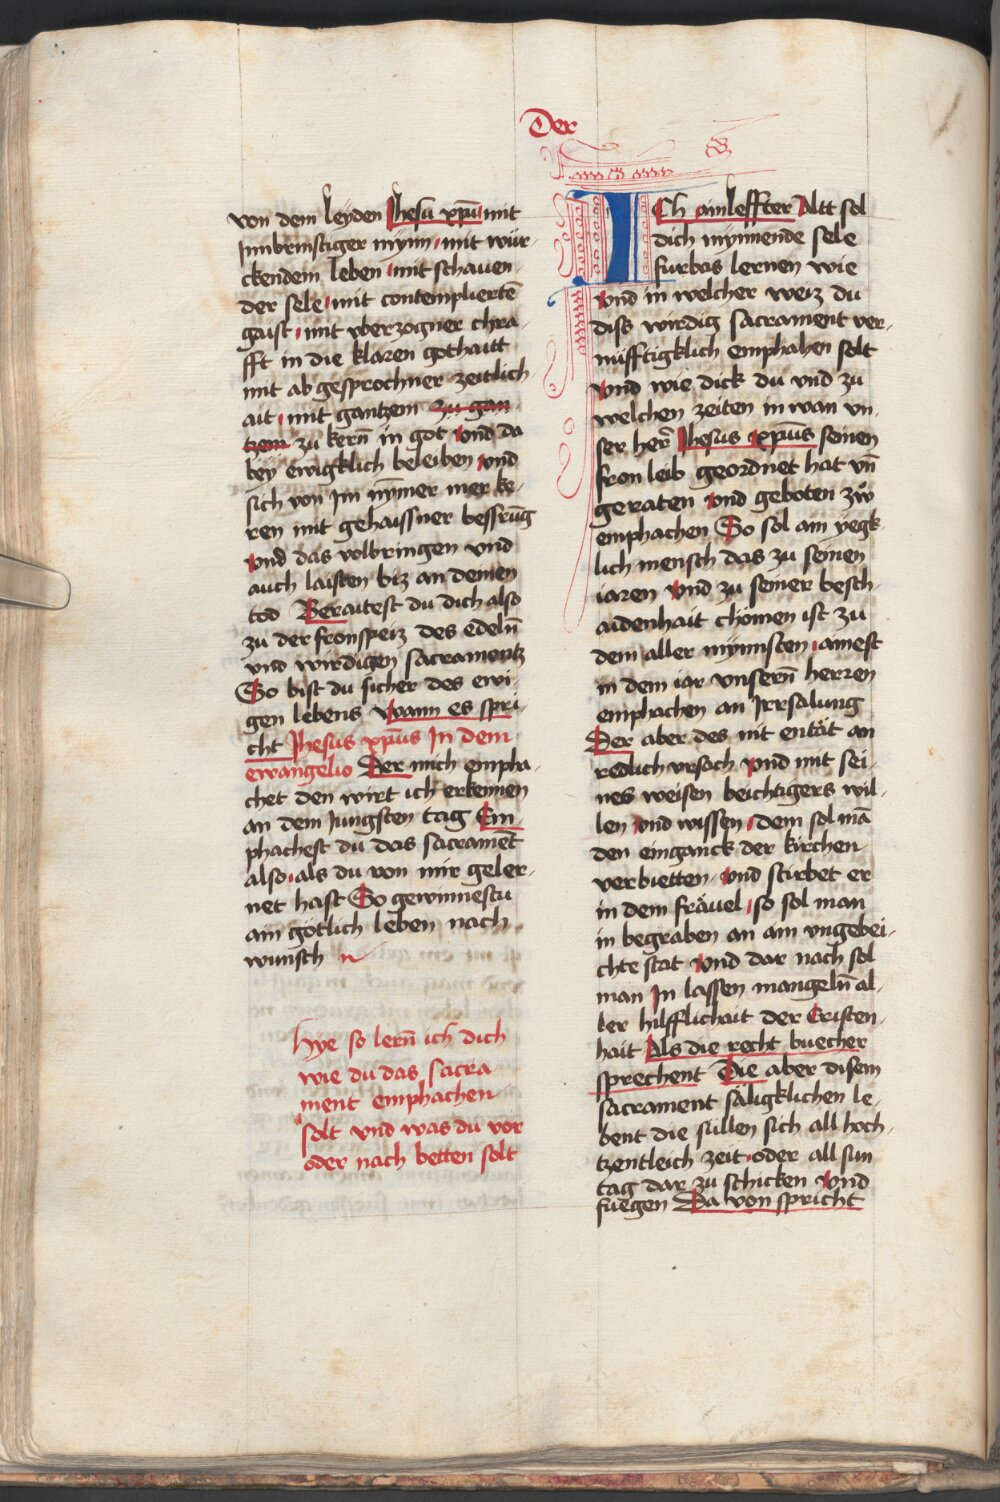 Der
von dem leyden Jhesu xpu mit
Innbrinstiger mynn mit wür-
ckendem leben mit schauen-
der sele mit contempliertē
gaist mit vberzogner chra-
fft in die klaren gothaitt
mit ab gesprochner zeitlich-
ait mit gantzem zu gan-
tzem zu kern̄ in got vnd da
bey ewigklich beleiben vnd
sich von jm nym̄er mer ke-
ren mit gehaissner bessrūg
vnd das volbringen vnd
auch laisten biz an deinen
tod Beraitest du dich also
zu der fronspeiz des edeln̄
vnd wirdigen sacramentz
So bist du sicher des ewi-
gen lebens Wann es spri-
cht Jhesus xpūs In dem
ewangelio Der mich empha-
chet den wirt ich erkennen
an dem Jungsten tag Em-
phachest du das sacramēt
also als du von mir geler-
net hast So gewinnestu
ain götlich leben nach
wunsch
Hye so lern̄ ich dich
wie du das sacra-
ment emphachen
solt vnd was du vor
oder nach betten solt
ICh ainleffter Altt sol
dich mynnende sele
furbas lernen wie
vnd in welcher weiz du
diss wirdig sacrament ver-
nüfftigklich emphahen solt
vnd wie dick du vnd zu
welchen zeiten in wan vn-
ser her̄ Jhesus xpūs seinen
fron leib geordnet hat vn̄
geraten vnd geboten zů
emphachen So sol ain yegk-
lich mensch das zu seinen
iaren vnd zu seiner besch-
aidenhait chömen ist zu
dem aller mynnsten ainest
in dem iar vnsern̄ herren
emphachen an Irrsalung
Der aber des nit entät an
redlich vrsach vnd mit sei-
nes weisen beichtigers wil-
len vnd wissen dem sol mā
den einganck der kirchen
verbietten vnd stirbet er
in dem fräuel so sol man
in begraben an ain vngebei-
chte stat vnd dar nach sol
man In lassen mangeln̄ al-
ler hilfflichait der Cristen-
hait Als die recht buecher
sprechent Die aber disem
sacrament säligklichen le-
bent die süllen sich all hoch-
tzentleich zeit oder all sun-
tag dar zu schicken vnd
fuegen Da von spricht